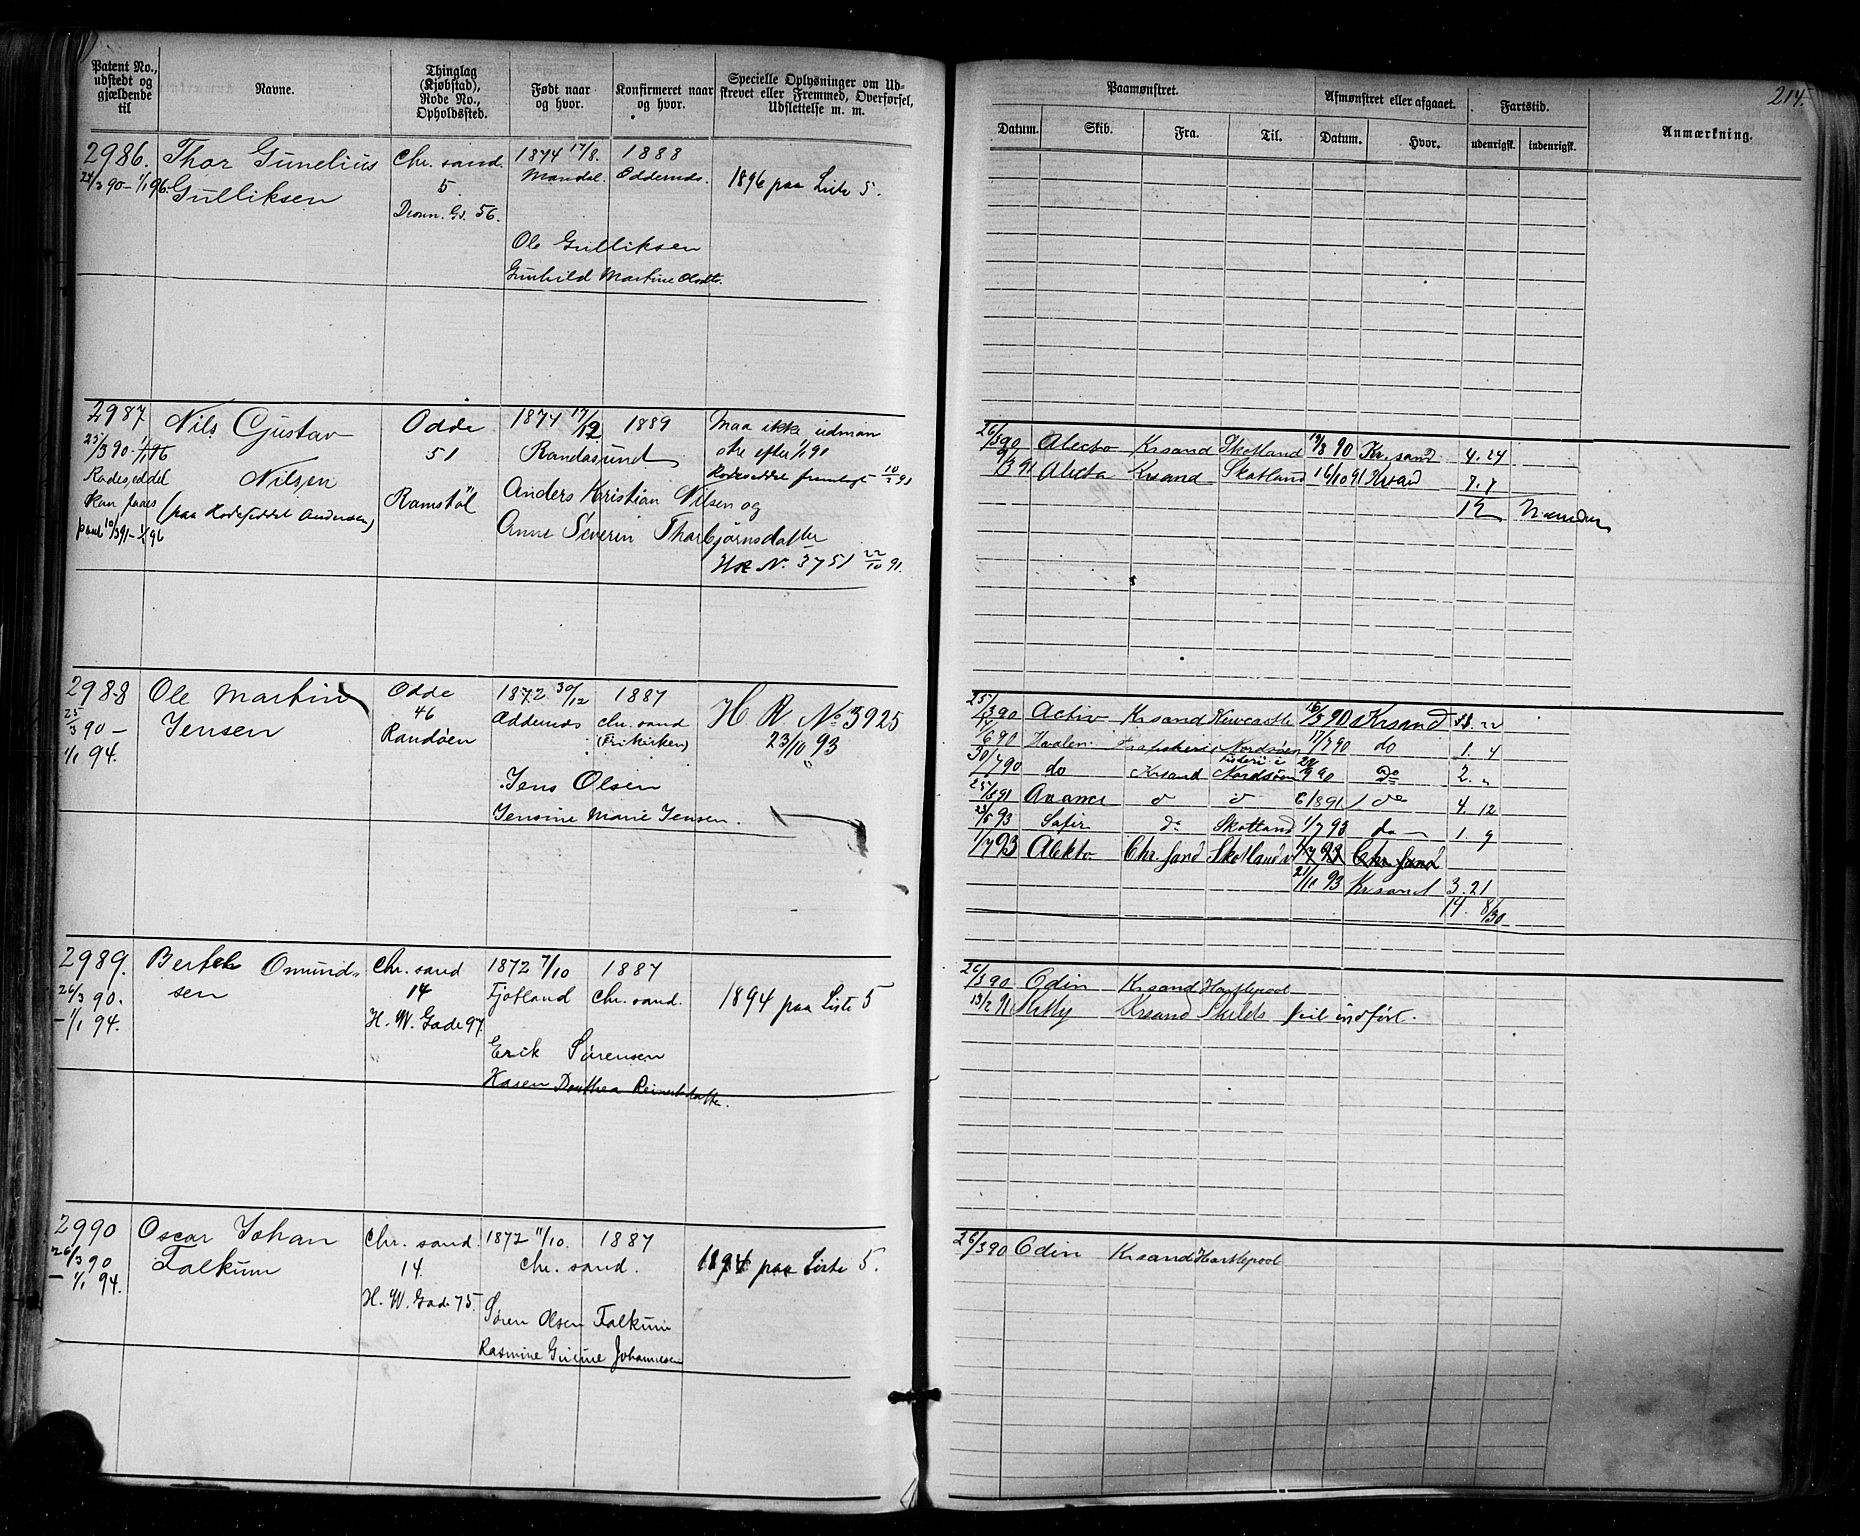 Patent No., udstedt og gjældende til
Navne.
Thinglag (Kjøbstad), Rode No., Opholdssted.
Født naar og hvor.
Konfirmeret naar og hvor.
Specielle Oplysninger om Udskrevet eller Fremmed, Overførsel, Udslettelse m. m.
Paamønstret.
Afmønstret eller afgaaet.
Fartstid.
Anmærkning.
214.
Datum. Skib. Fra. Til. Datum. Hvor. udenrigsk. indenrigsk.
2986. Thor Gunelius Chr. sand. 1874 17/8. 1888
24/3 90 – 1/1 96 Gulliksen 5. Mandal. Oddernes. 1896 paa Liste 5.
Dronn. Gd. 56.
Ole Gulliksen
Gunhild Martine Olsdtr.
2987 Nils Gustav Odde 1874 17/12 1889 Maa ikke udmøn
25/3 90 – 1/1 96 51 Randøsund stre efter 1/1 91
Rodeseddel Nilsen Rodeseddel fremlagt 10/3 91
kan faaes (paa Rodeseddel Andersen) Ramstøl Anders Kristian Nilsen og
10/3 91 – 1/1 96 Anne Severin Thorbjørnsdatter
N. 3751 22/10 91.
26/3 90 Alecto Krsand Skotland 19/8 90 Kr.sand 4. 24
/3 91 Alecta Krsand Skotland 16/10 91 Krsand 7. 7
12
2988 Ole Martin Odde 1872 30/12 1887 H. R. No 3925
25/3 90 – Jensen 46 Oddernes chr. sand 23/10 93
1/1 94. Randøen (Frikirken)
Jens Olsen
Jensine Marie Jensen.
25/3 90 Activ Krsand Newcastle 16/3 90 Krsand
/6 90 Nordsøen 17/7 90 do 1. 4
30/7 90 do Krsand Nordsøen 9 90 do 2. "
25/3 91 Avance 6/8 91 do 4. 12
23/5 93 Safir do Skotland 1/7 93 do 1. 9
1/7 93 Alekto Chr. sand Skotland 93 Chr. sand
21/10 93 Krsand 3. 21
14. 8/30
2989. Omund- Chr. sand 1872 7/10 1887
26/3 90. sen 14 Fjotland Chr. sand. 1894 paa Liste 5
– 1/1 94. H. W. Gade 97
Erik Sørensen
Karen Dorthea Reinertsdatter.
26/3 90 Odin Krsand Hartlepool
13/2 91 Krsand Shields feil indført.
2990 Oscar Johan Chr. sand. 1872 11/10. 1887
26/3 90 Falkum 14. Chr. sand. 1894 paa Liste 5.
– 1/1 94. H. W. Gade 75.
Søren Olsen Falkum
Rasmine Johannesen
26/3 90 Odin Krsand Hartlepool